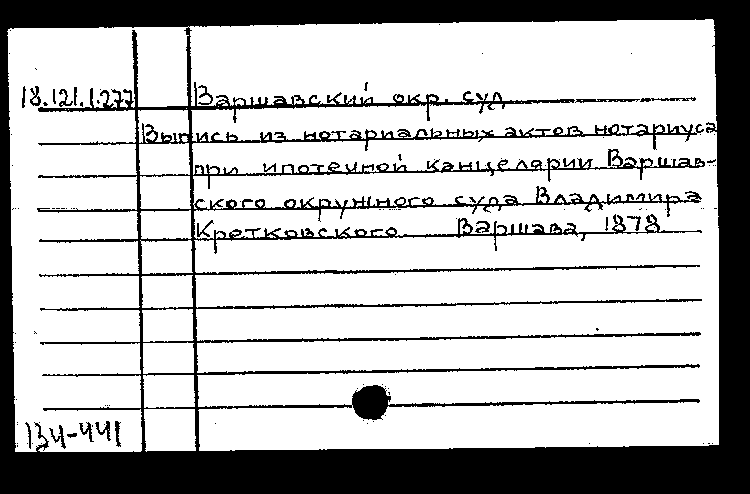 18.121.1.277 Варшавский окр. суд
Выпись из нотариальных актов нотариуса
при ипотечной канцелярии Варшав-
ского окружного суда Владимира
Кретковского. Варшава, 1878
134-441